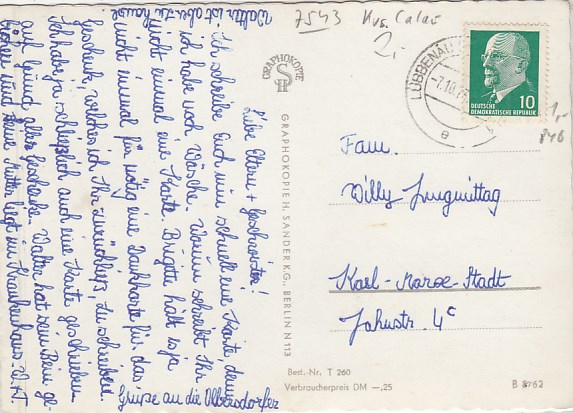 7543 Krs. Calau
2,-
LÜBBENAU
-7.10.
e
DEUTSCHE
DEMOKRATISCHE REPUBLIK
10
1,-
846
GRAPHOKOPIE
SH
GRAPHOKOPIE H. SANDER K.G., BERLIN N 113
Fam.
Willy Jungnittag
Karl-Marx-Stadt
Jahnstr. 4c
Best.-Nr. T 260
Verbraucherpreis DM —,25
B 8762
Liebe Eltern + Geschwister!
Ich schreibe Euch nun schnell eine Karte, denn
ich habe noch Wäsche. Warum schreibt Ihr
nicht einmal eine Karte. Brigitte hält es ja
nicht einmal für nötig eine Dankkarte für das
Geschenk, welches ich Ihr zurückließ, zu schreiben.
Ich habe ja schließlich auch eine Karte geschrieben
und alles Geschenke. Walter hat sein Bein ge-
brochen und seine Mutter liegt im Krankenhaus.
Walter ist aber zu Hause
Grüße an die Olbersdorfer